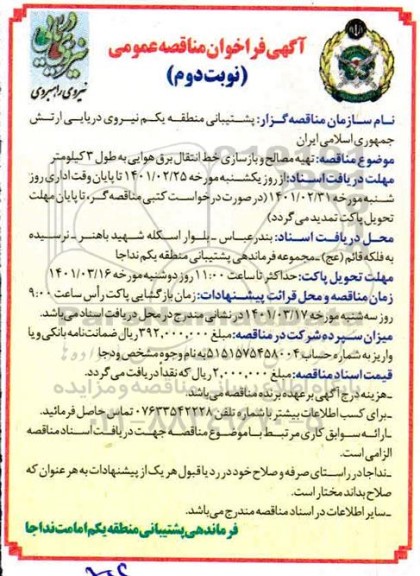 آگهی فراخوان مناقصه عمومی
(نوبت دوم)
نیروی راهبردی
نام سازمان مناقصه گزار: پشتیبانی منطقه یکم نیروی دریایی ارتش
جمهوری اسلامی ایران
موضوع مناقصه: تهیه مصالح و بازسازی خط انتقال برق هوایی به طول ۳ کیلومتر
مهلت دریافت اسناد: از روز یکشنبه مورخه ۱۴۰۱/۰۲/۲۵ تا پایان وقت اداری روز
شنبه مورخه ۱۴۰۱/۰۲/۳۱ (در صورت درخواست کتبی مناقصه گر، تا پایان مهلت
تحویل پاکت تمدید می گردد)
محل دریافت اسناد: بندرعباس ـ بلوار اسکله شهید باهنر ـ نرسیده
به فلکه قائم (عج) ـ مجموعه فرماندهی پشتیبانی منطقه یکم نداجا
مهلت تحویل پاکت: حداکثر تا ساعت ۱۱:۰۰ روز دوشنبه مورخه ۱۴۰۱/۰۳/۱۶
زمان مناقصه و محل قرائت پیشنهادات: زمان بازگشایی پاکت رأس ساعت ۹:۰۰
روز سه شنبه مورخه ۱۴۰۱/۰۳/۱۷ در نشانی مندرج در محل دریافت اسناد می باشد.
میزان سپرده شرکت در مناقصه: مبلغ ۳۹۲,۰۰۰,۰۰۰ ریال ضمانت نامه بانکی و یا
واریز به شماره حساب ۵۱۵۱۵۷۵۴۵۸۰۰۴ به نام وجوه مشخص ودجا
قیمت اسناد مناقصه: مبلغ ۲,۰۰۰,۰۰۰ ریال که نقداً دریافت می گردد.
ـ هزینه درج آگهی بر عهده برنده مناقصه می باشد.
ـ برای کسب اطلاعات بیشتر با شماره تلفن ۰۷۶۳۳۵۴۲۲۲۸ تماس حاصل فرمائید.
ـ ارائه سوابق کاری مرتبط با موضوع مناقصه جهت دریافت اسناد مناقصه
الزامی است.
ـ نداجا در راستای صرفه و صلاح خود در رد یا قبول هر یک از پیشنهادات به هر عنوان که
صلاح بداند مختار است.
ـ سایر اطلاعات در اسناد مناقصه مندرج می باشد.
فرماندهی پشتیبانی منطقه یکم امامت نداجا